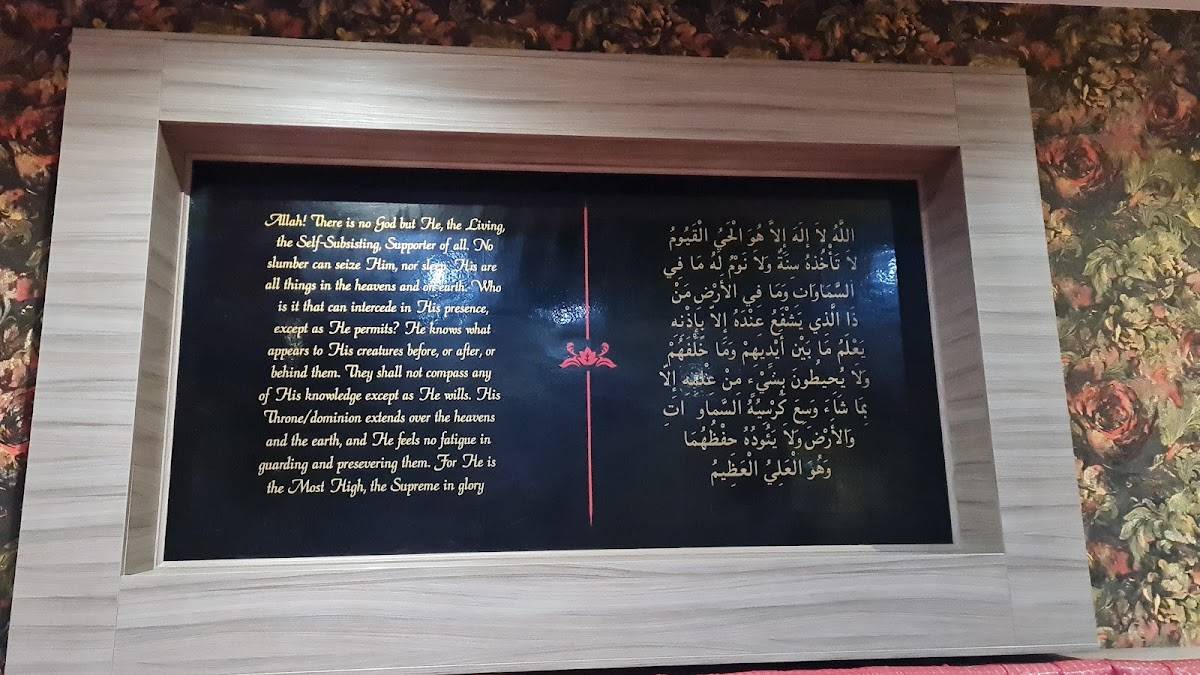 Allah! There is no God but He, the Living,
the Self-Subsisting, Supporter of all. No
slumber can seize Him, nor sleep. His are
all things in the heavens and on earth. Who
is it that can intercede in His presence,
except as He permits? He knows what
appears to His creatures before, or after, or
behind them. They shall not compass any
of His knowledge except as He wills. His
Throne/dominion extends over the heavens
and the earth, and He feels no fatigue in
guarding and presevering them. For He is
the Most High, the Supreme in glory
اللَّهُ لاَ إِلَهَ إِلاَّ هُوَ الْحَيُّ الْقَيُّومُ
لاَ تَأْخُذُهُ سِنَةٌ وَلاَ نَوْمٌ لَهُ مَا فِي
السَّمَاوَاتِ وَمَا فِي الأَرْضِ مَنْ
ذَا الَّذِي يَشْفَعُ عِنْدَهُ إِلاَّ بِإِذْنِهِ
يَعْلَمُ مَا بَيْنَ أَيْدِيهِمْ وَمَا خَلْفَهُمْ
وَلاَ يُحِيطُونَ بِشَيْءٍ مِنْ عِلْمِهِ إِلاَّ
بِمَا شَاءَ وَسِعَ كُرْسِيُّهُ السَّمَاوَاتِ
وَالأَرْضَ وَلاَ يَئُودُهُ حِفْظُهُمَا
وَهُوَ الْعَلِيُّ الْعَظِيمُ